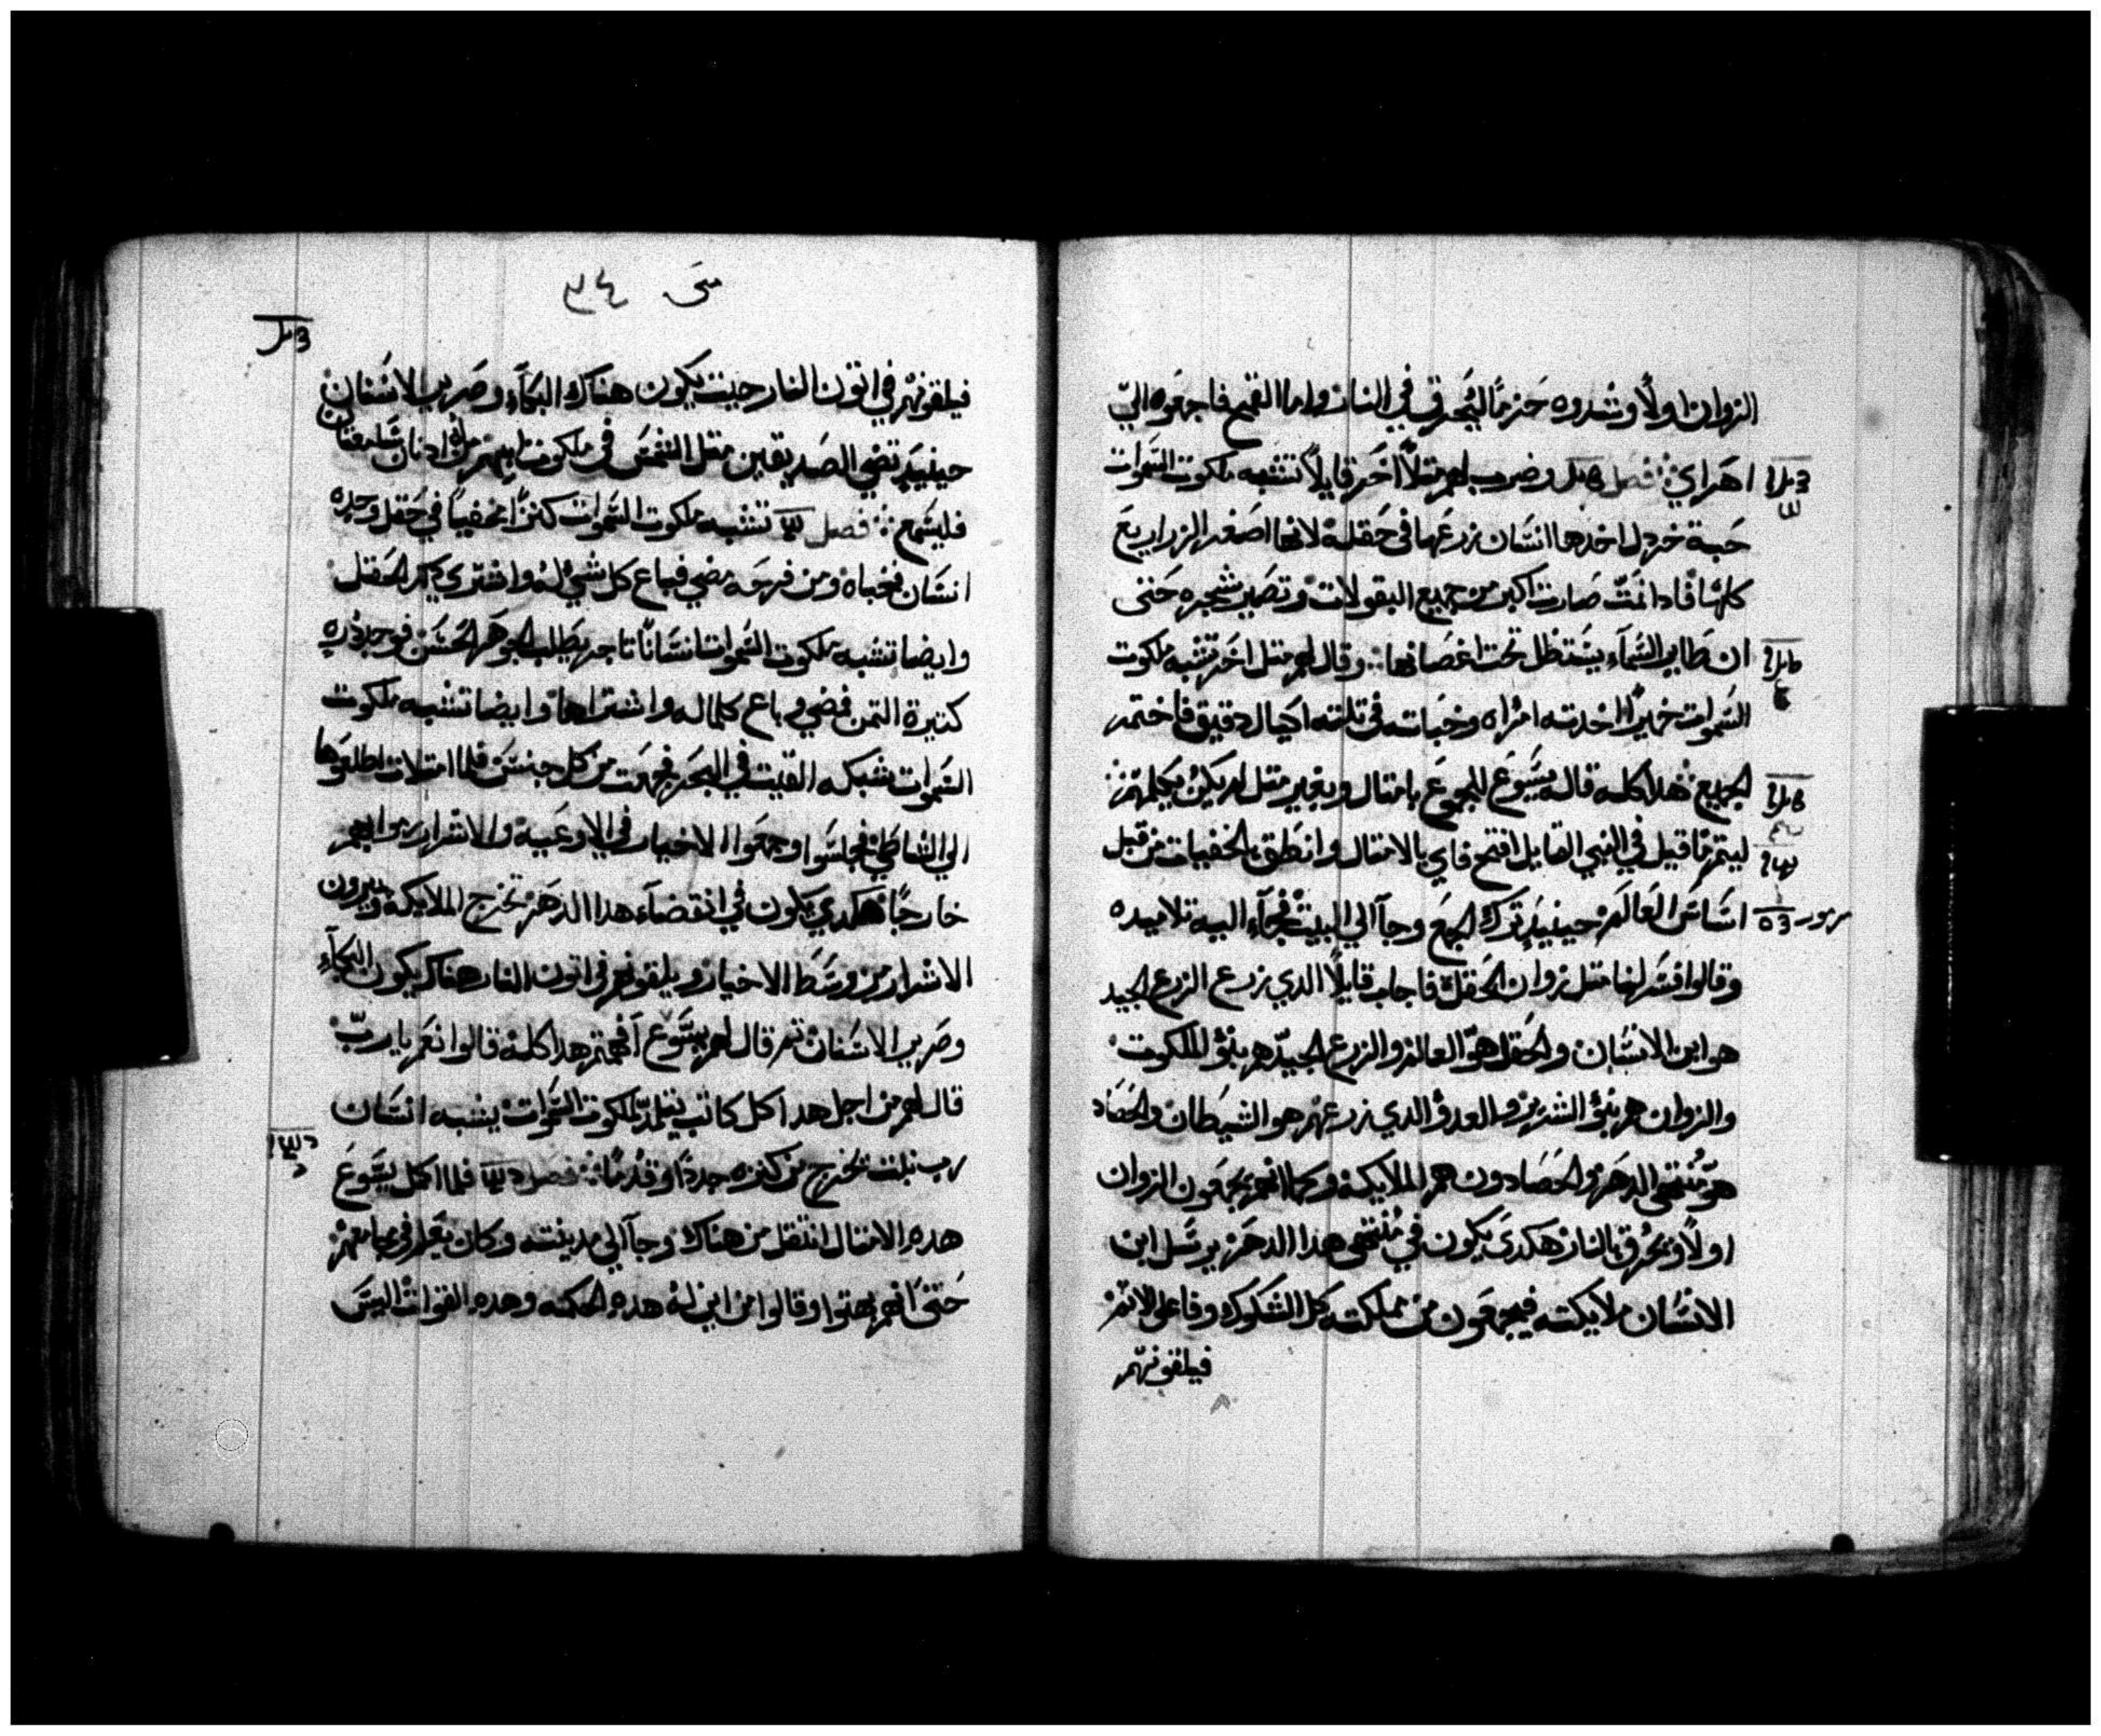 الزوان اولاً وشدوه حزماً ليُحرق في النار واما القمح فاجمعوه الي
اهراي فصل وضرب لهم مثلاً اخر قايلاً تشبه ملكوت السموات
حبة خردل اخدها انسان زرعها في حقله لانها اصغر الزراريع
كلها فادا نمت صارت اكبر من جميع البقولات وتصير شجره حتى
ان طاير السماء يستظل تحت اغصانها وقال لهم مثل اخر تشبه ملكوت
السموات خميراً اخدته امراه وخباته في تلته اكيال دقيق فاختمر
الجميع هدا كله قاله يسوع للجموع بامتال وبغير مثل لم يكن يكلمهم
ليتم ما قيل في النبي القايل افتح فاي بالامتال وانطق بالخفيات من قبل
اساس العالم حينيدٍ ترك الجمع وجآ الي البيت فجاء اليه تلاميده
وقالوا فسر لنا مثل زوان الحقل فاجاب قايلاً الدي زرع الزرع الجيد
هو ابن الانسان والحقل هو العالم والزرع الجيد هم بنو الملكوت
والزوان هم بنو الشرير والعدو الدي زرعهم هو الشيطان والحصاد
هو منتهى الدهر والحصادون هم الملايكة وكما انهم يجمعون الزوان
اولاً وتحرق بالنار هكدى يكون في منتهى هدا الدهر يرسل ابن
الانسان ملايكته فيجمعون من مملكته كل الشكوك وفاعلي الاتم
فيلقونهم
متى ٣٤
فيلقونهم في اتون النار حيت يكون هناك البكاء وصرير الاسنان
حينيدٍ تضي الصديقين مثل الشمس في ملكوت ابيهم من له ادنان سامعتان
فليسمع فصل تشبه ملكوت السموات كنزاً مخفياً في حقل وجده
انسان فخباه ومن فرحه مضي فباع كل شي له واشترى دلك الحقل
وايضا تشبه ملكوت السموات انساناً تاجر يطلب الجوهر الحسن فوجد دره
كتيرة التمن فمضي وباع كلماله واشتراها وايضا تشبه ملكوت
السموات شبكه القيت في البحر فجمعت من كل جنس فلما امتلات اطلعوها
الي الشاطي فجلسوا وجمعوا الاخيار في الاوعية والاشرار رموا بهم
خارجاً هكدي يكون في انقضاء هدا الدهر تخرج الملايكة ويميزون
الاشرار من وسط الاخيار ويلقونهم في اتون النار هناك يكون البكآء
وصرير الاسنان تم قال لهم يسوع افهمتم هدا كله قالوا نعم يا رب
قال لهم من اجل هدا كل كاتب يتلمد لملكوت السموات يشبه انسان
رب بيت تخرج من كنزه جدداً وقدماً فصل فلما اكمل يسوع
هده الامتال انتقل من هناك وجآ الي مدينته وكان يعلم في مجامعهم
حتى انهم بهتوا وقالوا من اين له هده الحكمه وهده القوات اليس